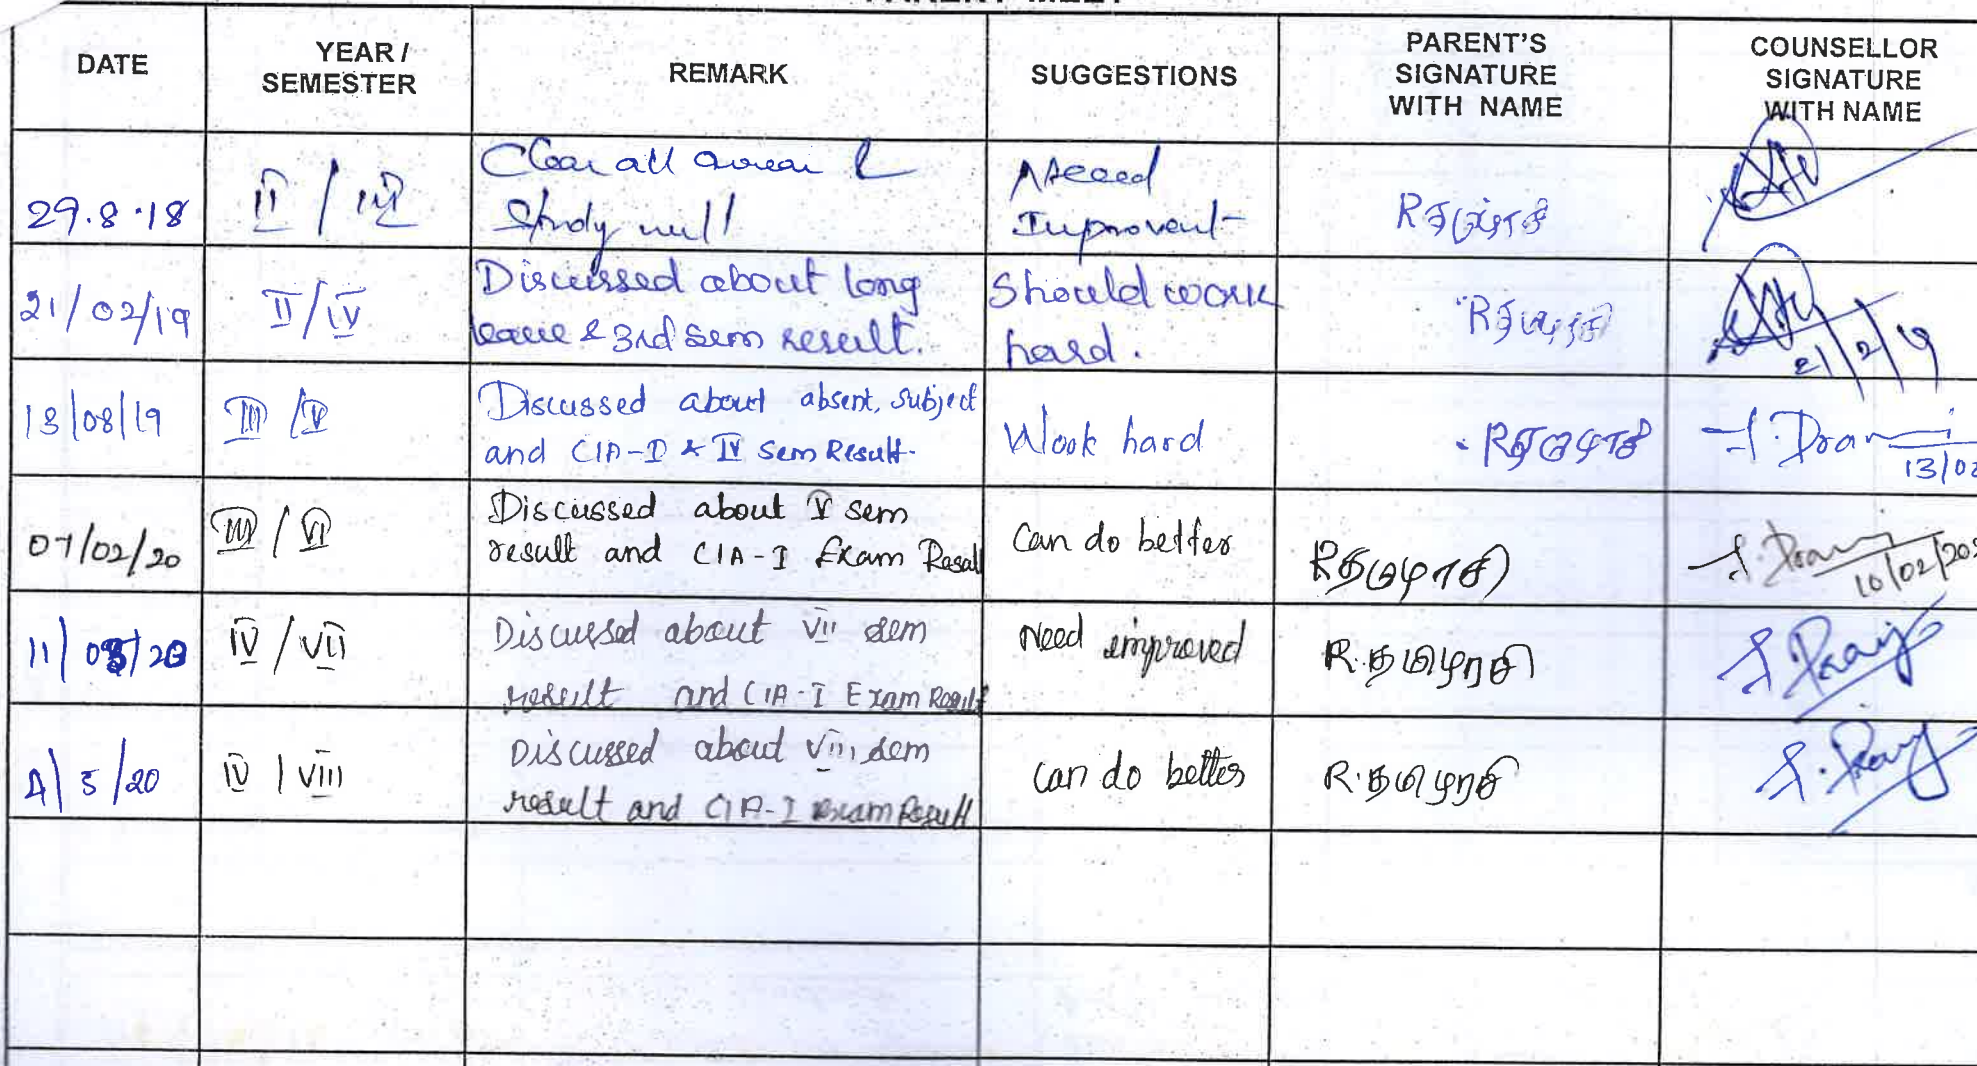 PARENT MEET
DATE
YEAR /
SEMESTER
REMARK
SUGGESTIONS
PARENT'S
SIGNATURE
WITH NAME
COUNSELLOR
SIGNATURE
WITH NAME
29.8.18
II / III
Clear all arrear &
Study well
Need
Improvent
21/02/19
II/IV
Discussed about long
leave & 3rd sem result.
Should work
hard.
21/2/19
13/08/19
III/V
Discussed about absent, subject
and CIA-I & IV Sem Result.
Work hard
13/08
07/02/20
III/VI
Discussed about V sem
result and CIA-I Exam Result
Can do better
R தமிழரசி
10/02/202
11/08/20
IV/VII
Discussed about VII sem
result and CIA-I Exam Result
Need improved
R.தமிழரசி
4/5/20
IV / VIII
Discussed about VIII sem
result and CIA-I Exam Result
can do better
R.தமிழரசி